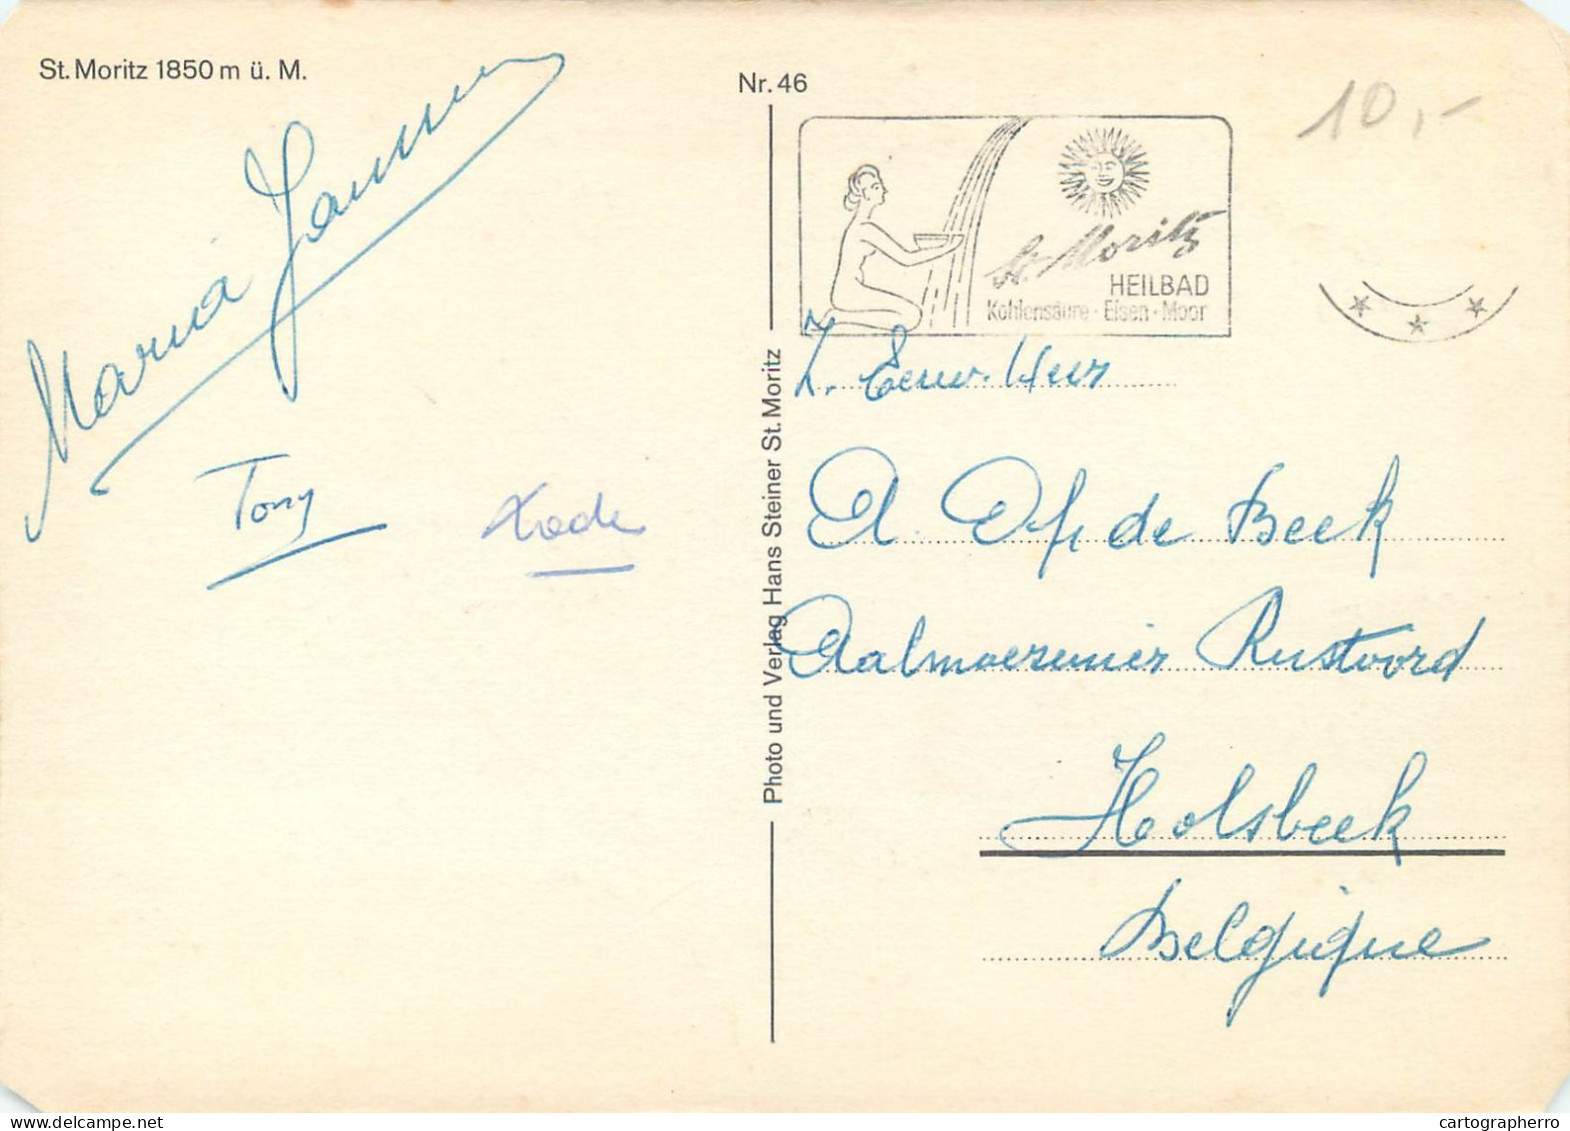 St. Moritz 1850 m ü. M.
Maria
Tony
Nr. 46
Photo und Verlag Hans Steiner St. Moritz
10,-
St. Moritz
HEILBAD
Kohlensäure · Eisen · Moor
Z. Eerw. Heer
A. Op de Beek
Aalmoezenier Rustoord
Holsbeek
Belgique
cartographerro